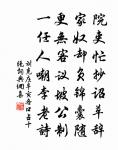 院吏忙抄诏草辞
家奴却负锦囊随
更无客议坡公制
一任人嘲李老诗
刘克庄辛亥各口占十
绝 词典网集